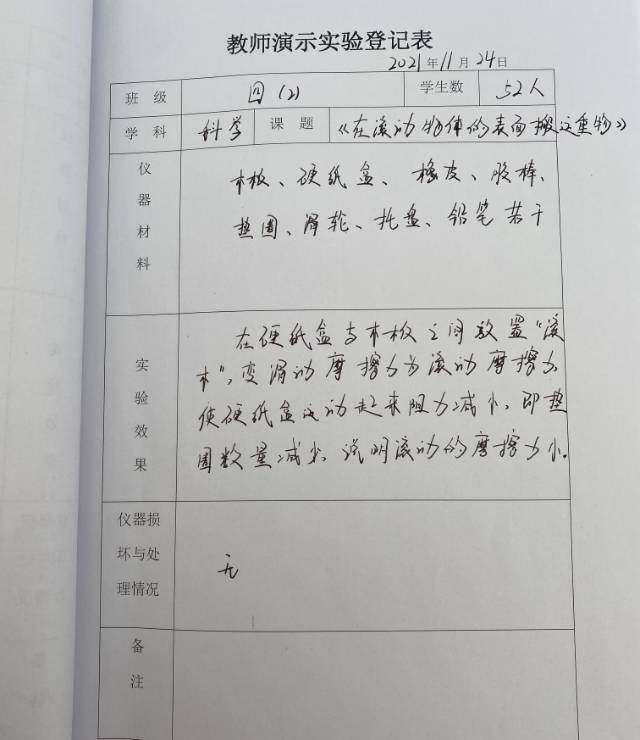 教师演示实验登记表
2021年11月24日
班 级 四(2) 学生数 52人
学 科 科学 课 题 《在滚动物体的表面搬运重物》
仪器材料
木板、硬纸盒、橡皮、胶棒、
垫圈、滑轮、托盘、铅笔若干
实验效果
在硬纸盒与木板之间放置“滚
木”,变滑动摩擦力为滚动摩擦力,
使硬纸盒运动起来阻力减小,即垫
圈数量减少,说明滚动的摩擦力小。
仪器损
坏与处
理情况
无
备注